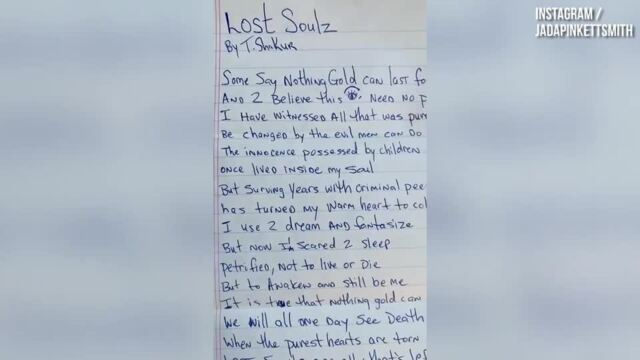 INSTAGRAM /
JADAPINKETTSMITH
Lost Soulz
By T. Shakur
Some Say Nothing Gold can last fo
AND 2 Believe this 👁 Need No P
I Have Witnessed All that was pur
Be changed by the evil men can Do
The innocence possessed by children
once lived inside my soul
But surving years with criminal pee
has turned my warm heart to col
I use 2 dream AND fantasize
But now I'm scared 2 sleep
petrified, not to live or Die
But to Awaken and still be me
It is true that nothing gold can
We will all one Day see Death
When the purest hearts are torn